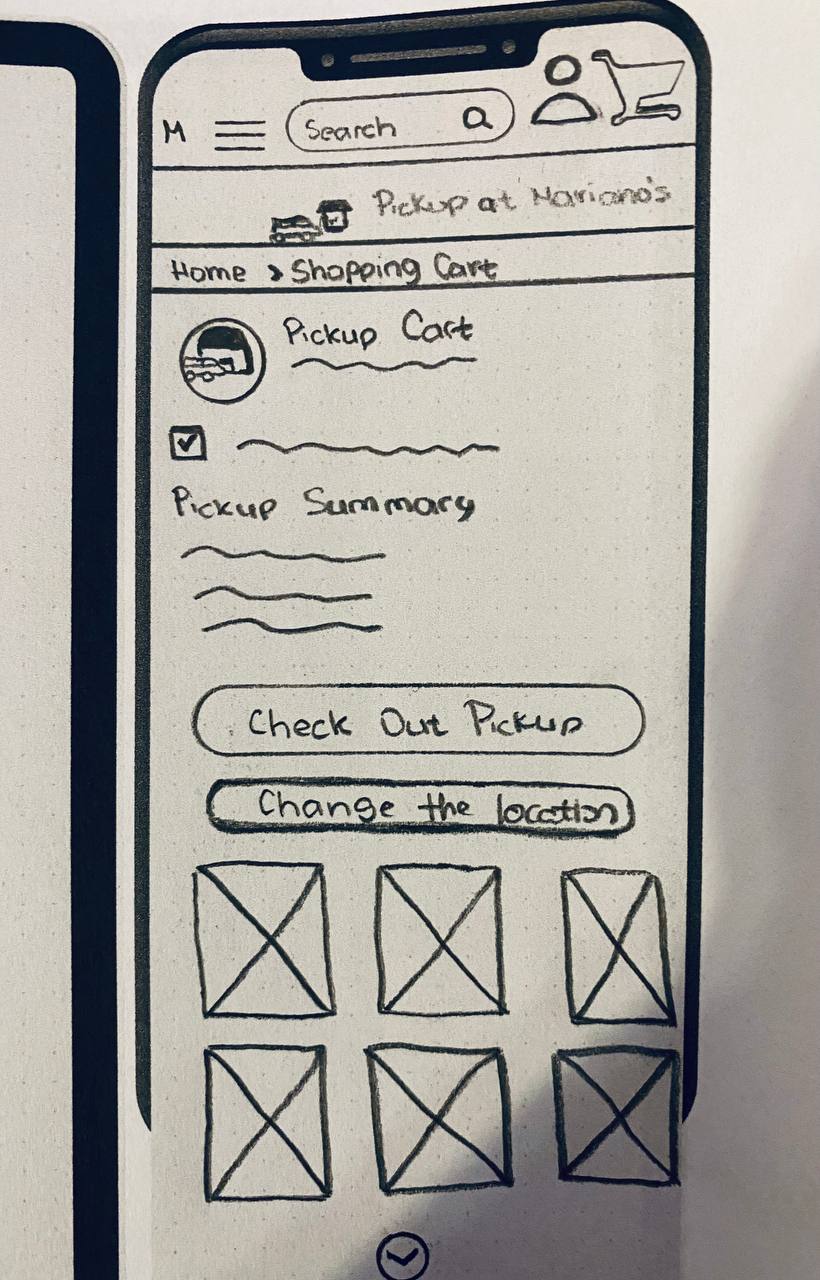 M Search
Pickup at Mariano's
Home > Shopping Cart
Pickup Cart
Pickup Summary
Check Out Pickup
Change the location